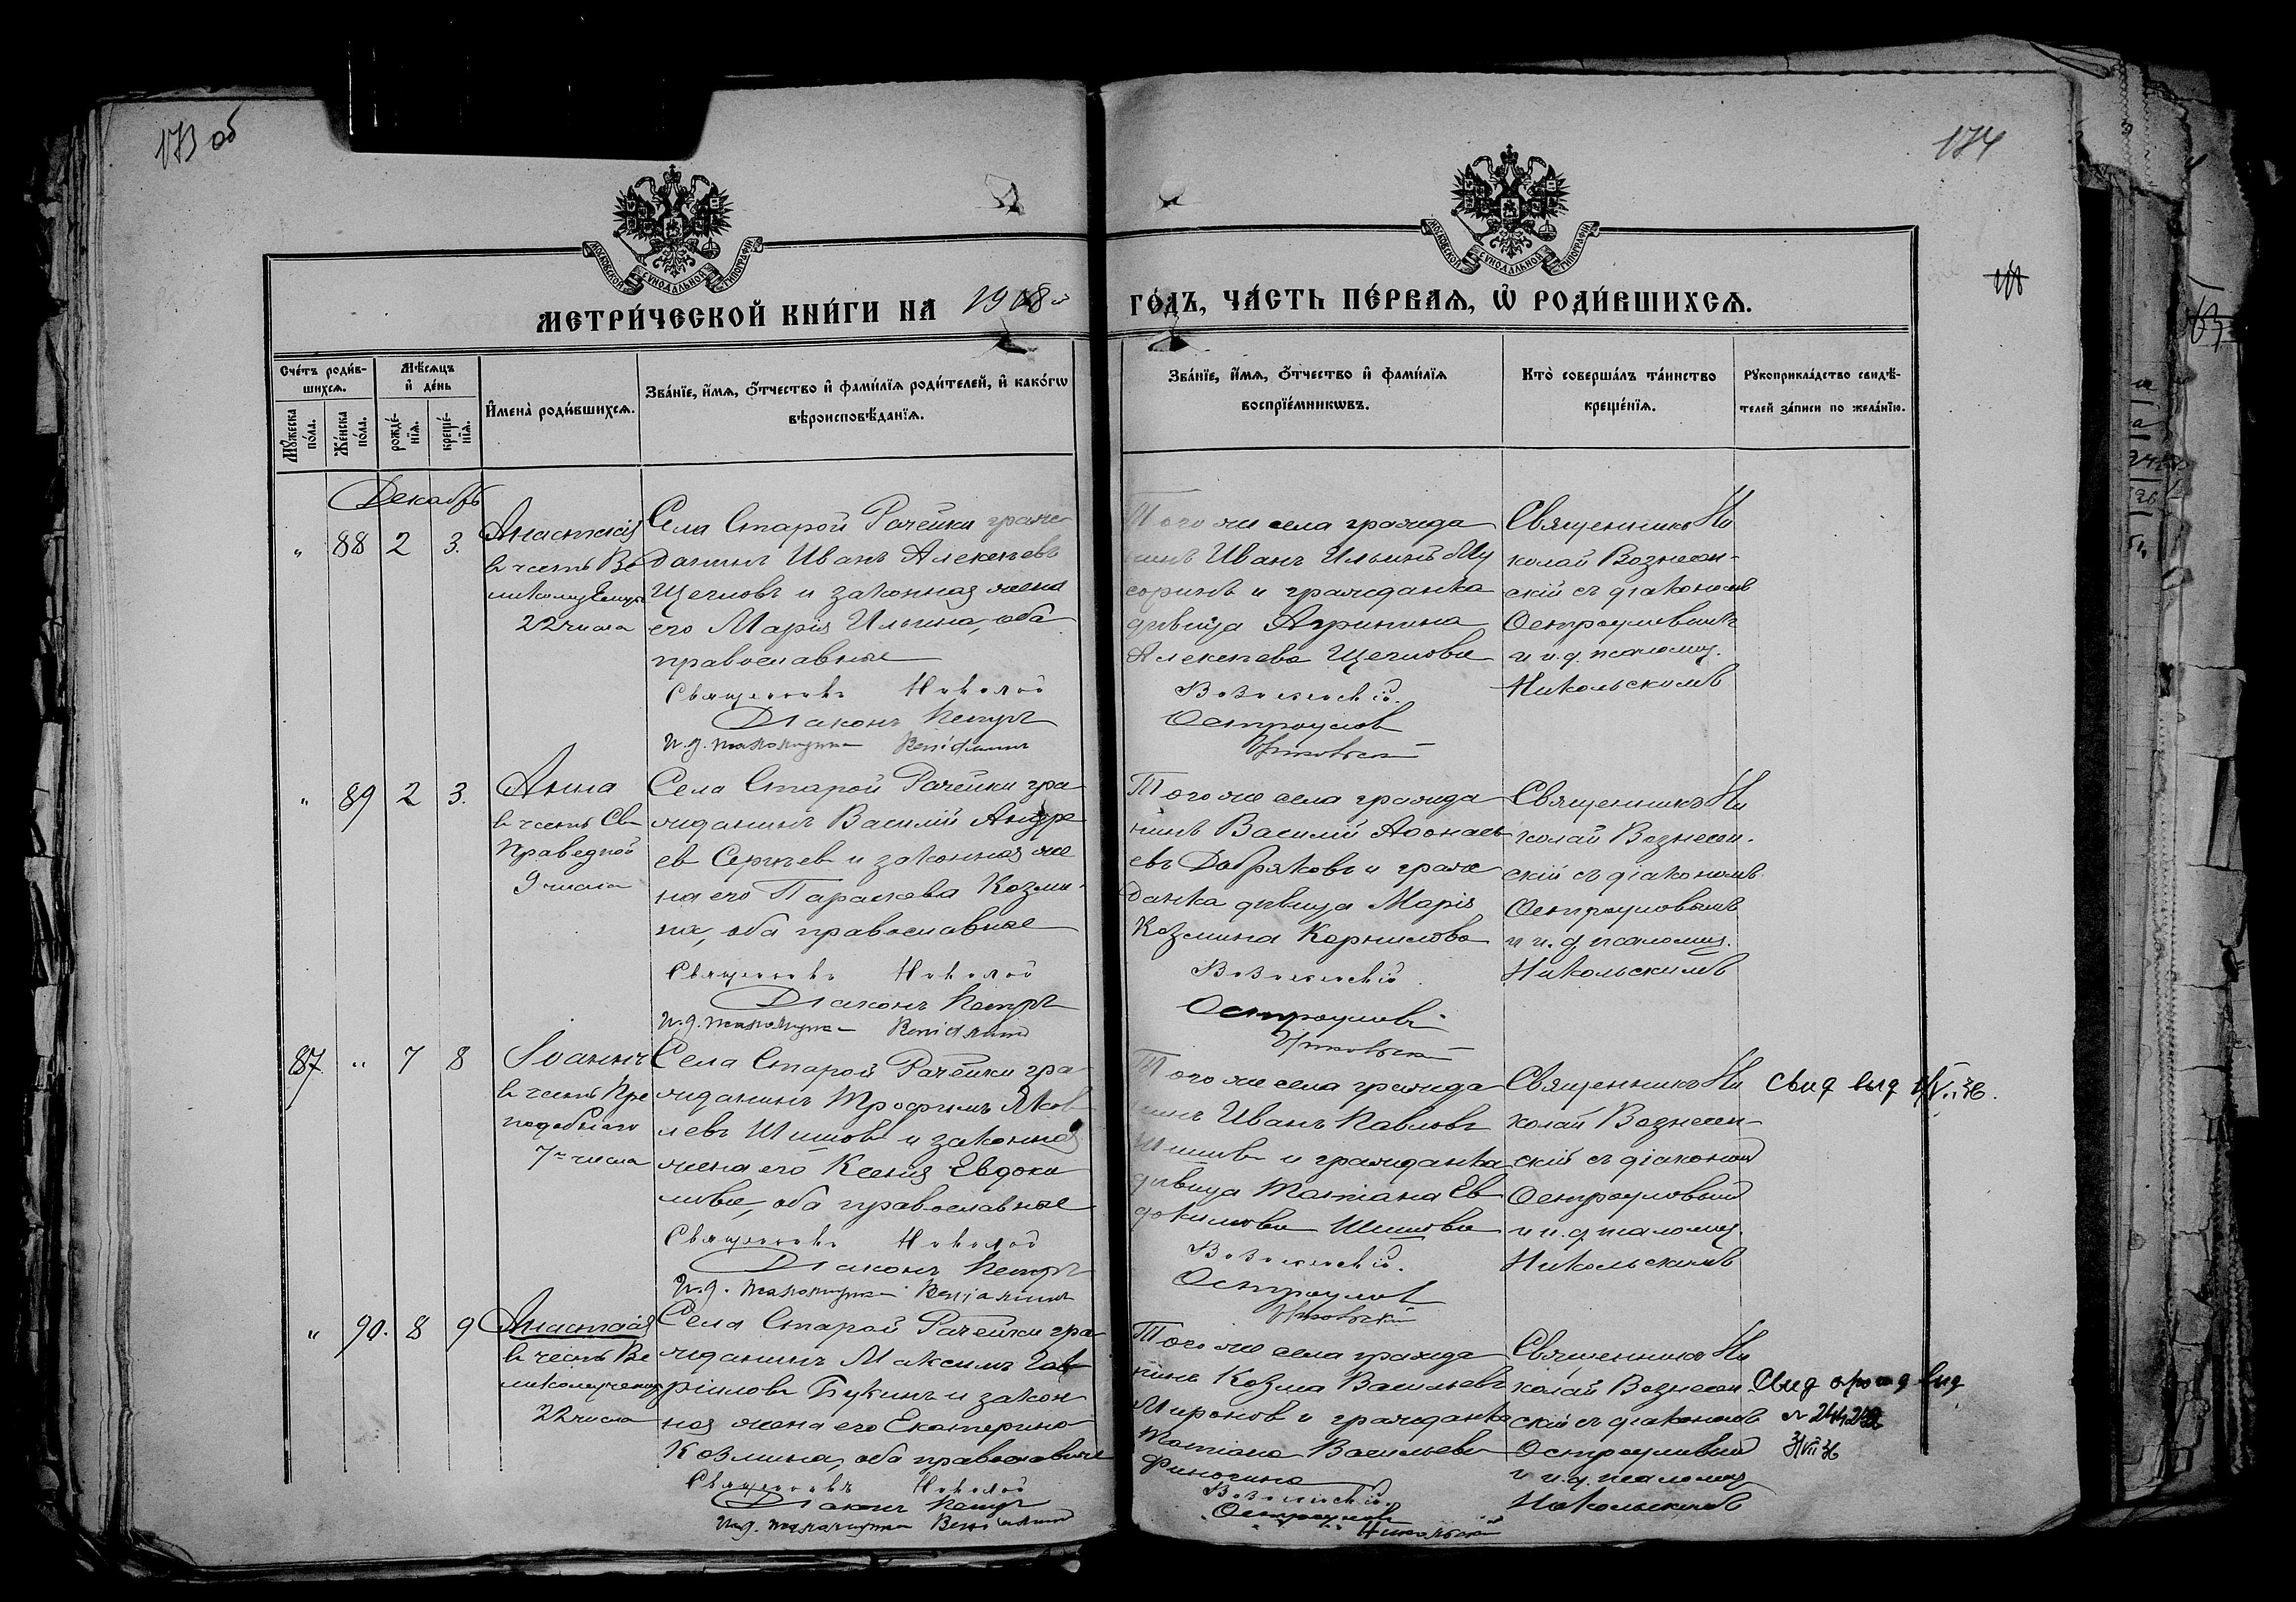 173 об
174
МОСКОВСКОЙ СУНОДАЛЬНОЙ ТИПОГРАФІИ
МОСКОВСКОЙ СУНОДАЛЬНОЙ ТИПОГРАФІИ
МЕТРИ́ЧЕСКОЙ КНИ́ГИ НА 1918й
ГО́ДЪ, ЧА́СТЬ ПЕ́РВАѦ, Ѡ҆ РОДИ́ВШИХСѦ.
Сче́тъ роди́в-
шихсѧ.
Мꙋ́жеска по́ла.
Же́нска по́ла.
Мѣ́сѧцъ
и҆ де́нь
рожде́-
нїѧ.
креще́-
нїѧ.
И҆мена̀ роди́вшихсѧ.
Зва́нїе, и҆́мѧ, ѻ҆́тчество и҆ фами́лїѧ роди́телей, и҆ како́гѡ
вѣроисповѣ́данїѧ.
Зва́нїе, и҆́мѧ, ѻ҆́тчество и҆ фами́лїѧ
воспрїе́мникѡвъ.
Кто̀ соверша́лъ та́инство
креще́нїѧ.
Рꙋкоприкла́дство свидѣ́-
телей за́писи по жела́нїю.
Декабрь
" 88 2 3.
Анастасія
в честь Ве
ликомучен
22 числа
Села Старой Рачейки граж
данинъ Иванъ Алексѣевъ
Щегловъ и законная жена
его Марія Ильина, оба
православные
Священникъ Николай
Діаконъ Петръ
И.д. псаломщика Веніаминъ
Того же села гражда
нинъ Иванъ Ильинъ Му
соринъ и гражданка
дѣвица Агрипина
Алексѣева Щеглова
Вознесенскій.
Остроумов
Никольскій
Священникъ Ни
колай Вознесен-
скій съ діакономъ
Остроумовымъ
и и.д. псаломщ.
Никольскимъ
" 89 2 3.
Анна
в честь Св
Праведной
9 числа
Села Старой Рачейки гра
жданинъ Василій Андре
ев Сергѣев и законная же
на его Параскева Козми-
на, оба православные
Священникъ Николай
Діаконъ Петръ
И.д. псаломщика Веніаминъ
Того же села гражда
нинъ Василій Аѳонась
евъ Добряковъ и граж
данка дѣвица Марія
Козмина Корнилова
Вознесенскій.
Остроумовъ
Никольскій
Священникъ Ни
колай Вознесен.
скій съ діакономъ
Остроумовымъ
и и.д. псаломщ.
Никольскимъ
87 " 7 8
Іоаннъ
в честь Пре
подобнаго
7го числа
Села Старой Рачейки гра
жданинъ Трофимъ Яков
левъ Шишовъ и законная
жена его Ксенія Евдоки
мова, оба православные
Священникъ Николай
Діаконъ Петръ
И.д. псаломщика Веніаминъ
Того же села гражда
нинъ Иванъ Павловъ
Шишовъ и гражданка
дѣвица Татіана Ев
докимова Шишова
Вознесенскій.
Остроумов
Никольскій
Священникъ Ни
колай Вознесен-
скій съ діакономъ
Остроумовымъ
и и.д. псаломщ.
Никольскимъ
Свид выд
" 90. 8 9
Анастасія
в честь Ве
ликомучениц
22 числа
Села Старой Рачейки гра
жданинъ Максимъ Гав
ріиловъ Букинъ и закон
ная жена его Екатерина
Козмина, оба православные
Священникъ Николай
Діаконъ Петръ
И.д. псаломщика Веніаминъ
Того же села гражда
нинъ Козма Васильевъ
Миронов и гражданка
Татіана Васильева
Финогина
Вознесенскій.
Остроумовъ
Никольскій
Священникъ Ни
колай Вознесен
скій съ діакономъ
Остроумовымъ
и и.д. псаломщ
Никольскимъ
Свид о рожд выд